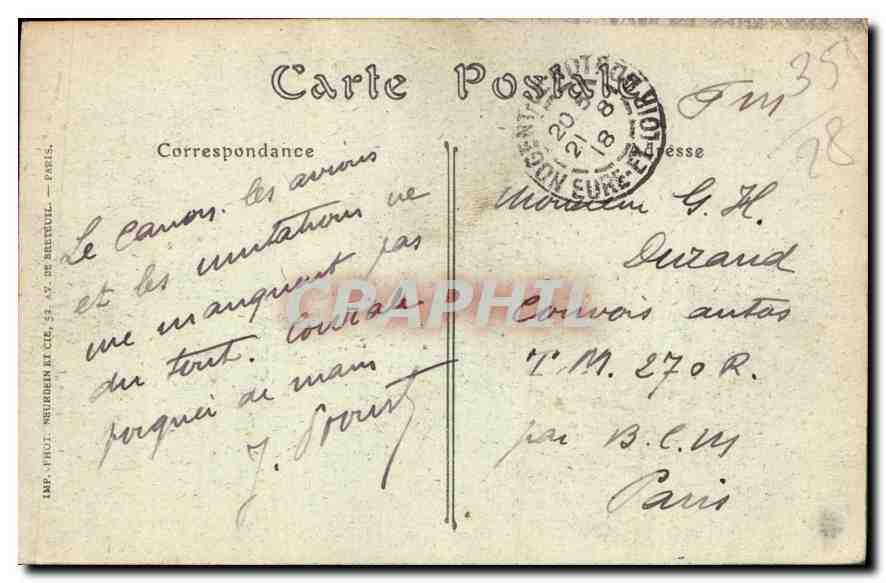 Carte Postale
NOGENT-LE-ROTROU EURE-ET-LOIR
20 35
21 8
18
F M
35
28
Correspondance
Adresse
Le canon. les avions
et les mutations ne
me manquent pas
du tout. Cordiale
poignée de main
J. Proust
Monsieur G. H.
Durand
Convois autos
T. M. 270 R.
par B. C. M
Paris
IMP. PHOT. NEURDEIN ET CIE, 52, AV. DE BRETEUIL. — PARIS.
CPAPHIL